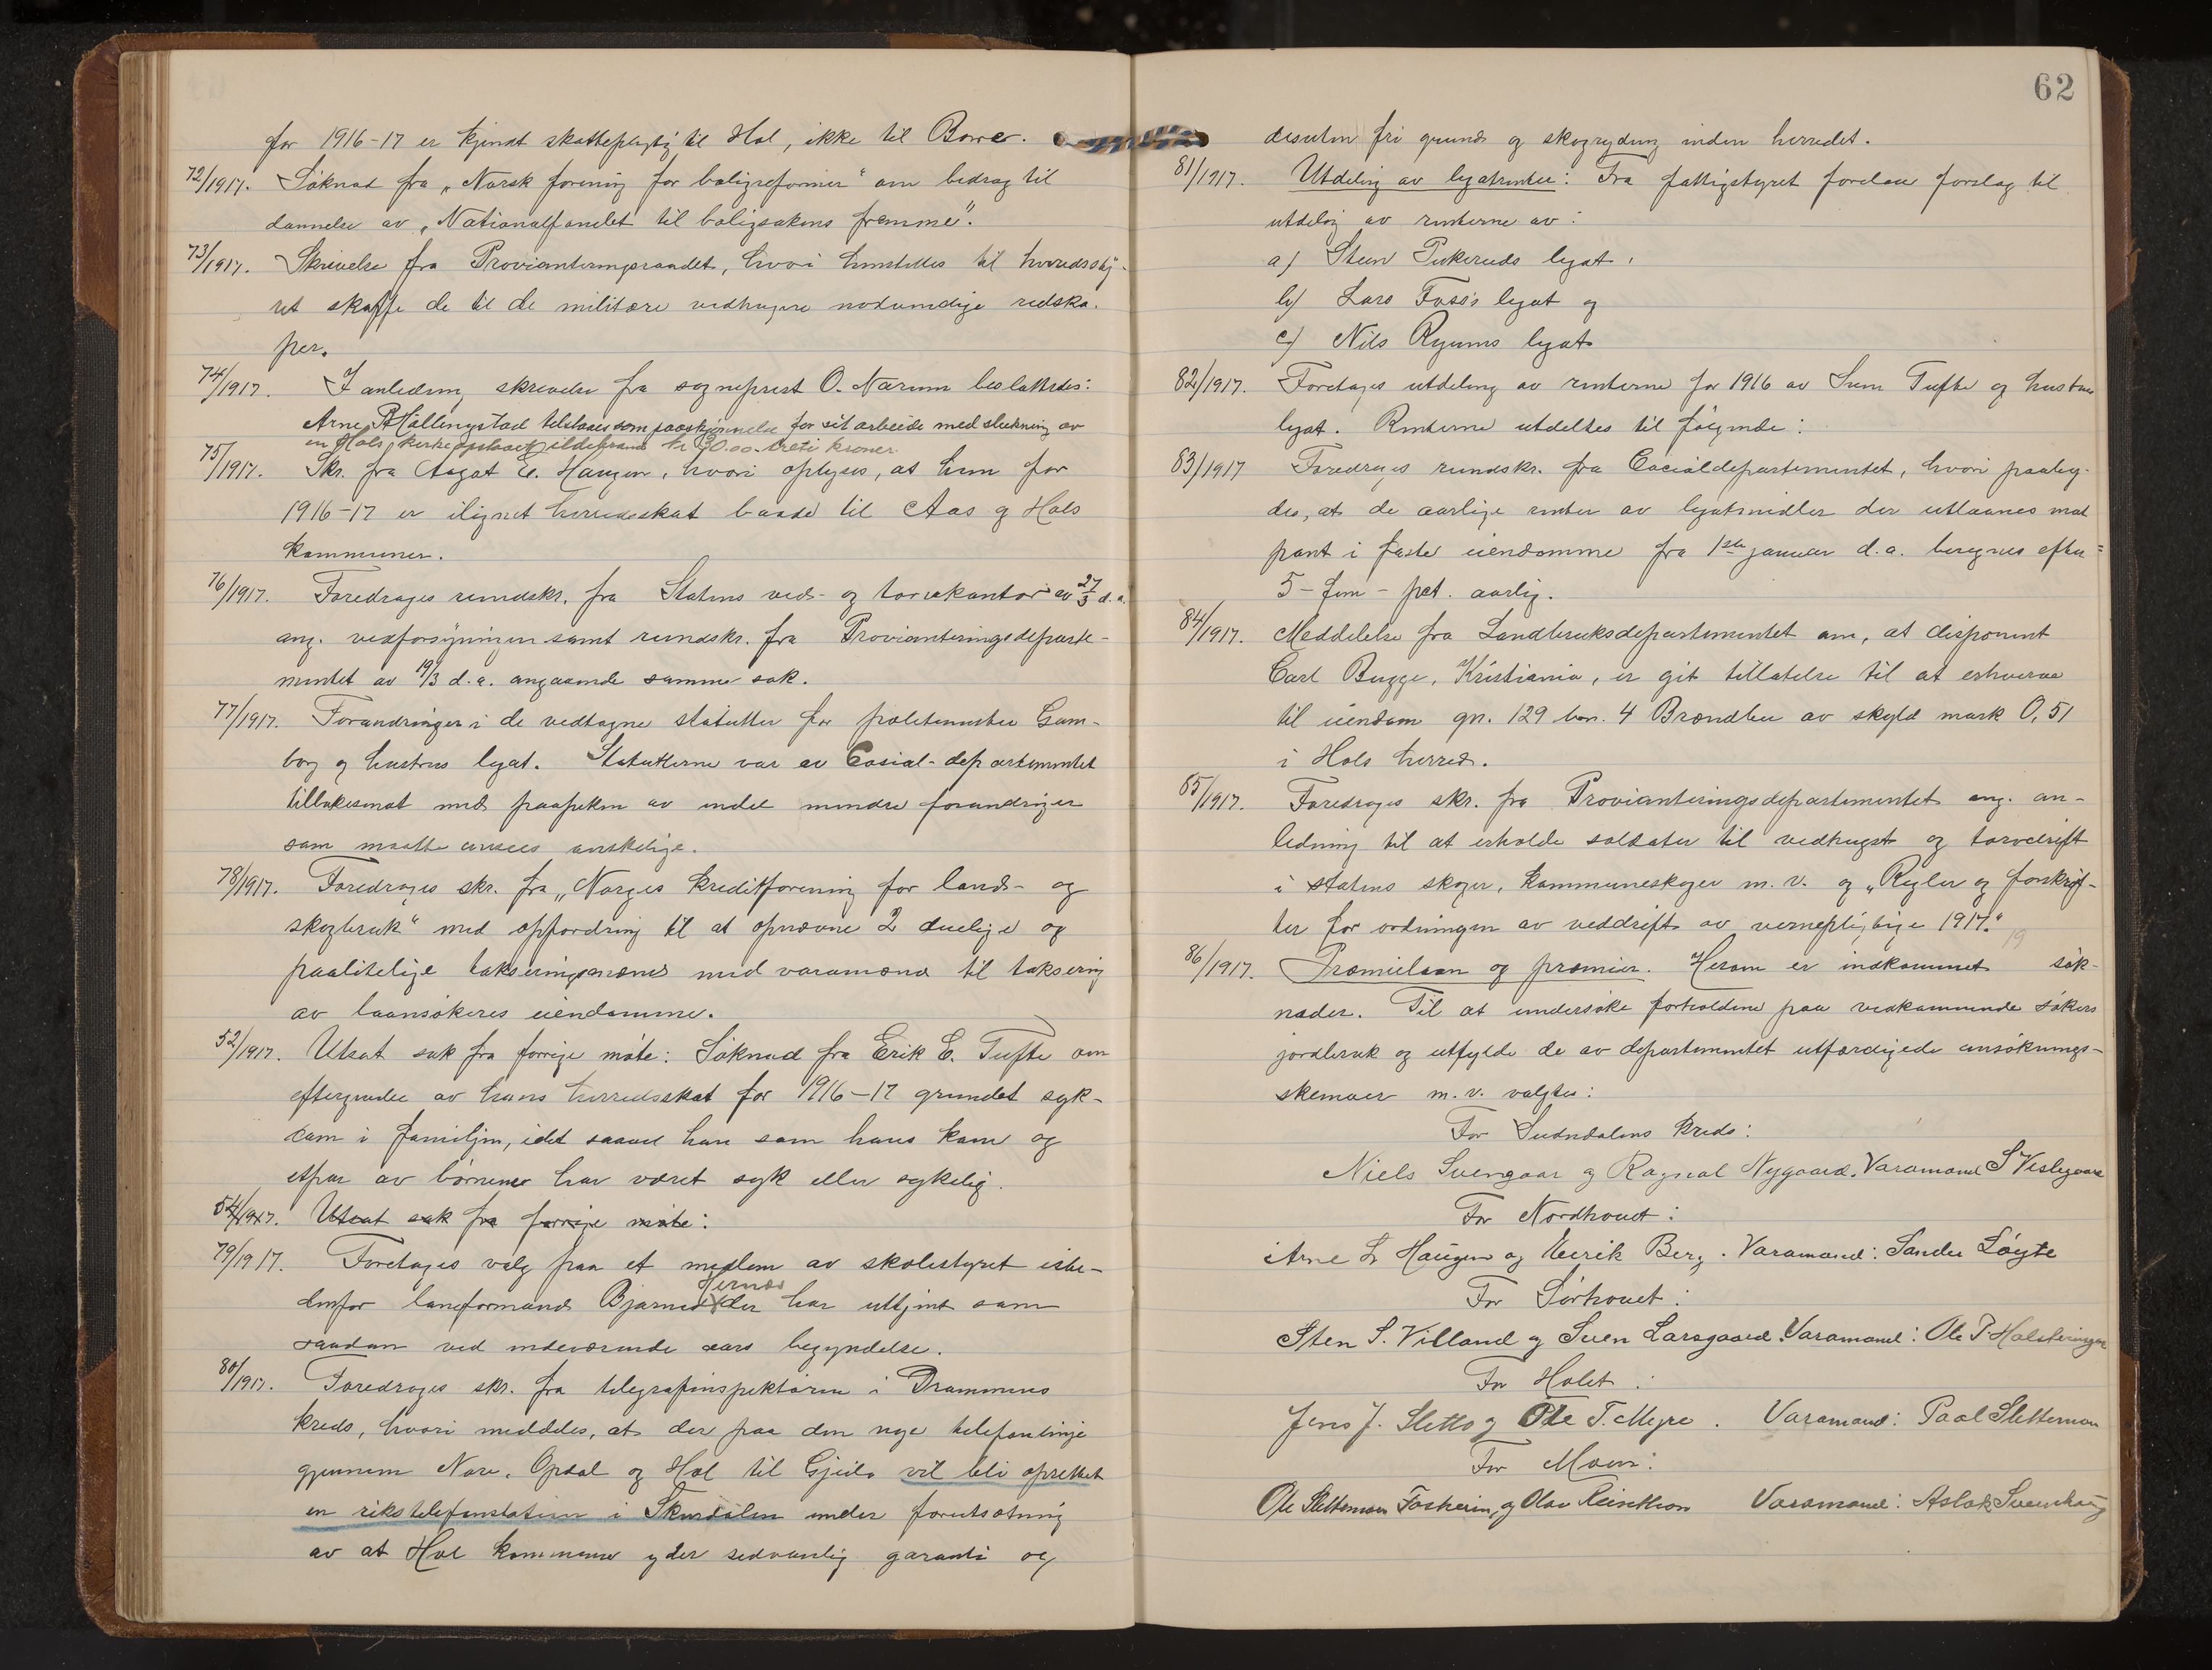 for 1916-17 er kjendt skattepligtig til Hol, ikke til Borre.
72/1917. Søknad fra „Norsk forening for boligreformer" om bedrag til
dannelse av „Nationalfondet til boligsakens fremme".
73/1917. Skrivelse fra Provianteringsraadet, hvori henstilles til herredssty-
ret skaffe de til de militære vedhugere nødvendige redska-
per.
74/1917. I anledning skrivelse fra sogneprest O. Narum besluttedes:
Arne P. Hallingstad tilstaaes som paaskjønnelse for sit arbeide med slukning av
en Hols kirke opstaaet ildebrand kr 30.00 - treti kroner.
75/1917. Skr. fra Aagot E. Haugen, hvori oplyses, at hun for
1916-17 er ilignet herredsskat baade til Aas og Hols
kommuner.
76/1917. Foredrages rundskr. fra Statens ved- og torvkontor av 27/3 d.a.
ang. vedforsyningen samt rundskr. fra Provianteringsdeparte-
mentet av 19/3 d.a. angaaende samme sak.
77/1917. Forandringer i de vedtagne statutter for politimester Gam-
borg og hustrus legat. Statutterne var av Social-departementet
tilbakesendt med paapeken av endel mindre forandringer
som maatte ansees ønskelige.
78/1917. Foredrages skr. fra „Norges kreditforening for land- og
skogbruk" med opfordring til at opnævne 2 duelige og
paalitelige takseringsmænd med varamænd til taksering
av laansøkeres eiendomme.
52/1917. Utsat sak fra forrige møte: Søknad fra Erik E. Tufte om
eftergivelse av hans herredsskat for 1916-17 grundet syk-
dom i familjen, idet saavel han som hans kone og
etpar av børnene har været syk eller sykelig.
54/1917. Utsat sak fra forrige møte:
79/1917. Foretages valg paa et medlem av skolestyret iste-
denfor lensformand Bjarne Hernæs der har uttjent som
saadan ved indeværende aars begyndelse.
80/1917. Foredrages skr. fra telegrafinspektøren i Drammens
kreds, hvori meddeles, at der paa den nye telefonlinje
gjennem Nore, Opdal og Hol til Gjeilo vil bli oprettet
en rikstelefonstation i Skurdalen under forutsætning
av at Hol kommune yder sedvanlig garanti og
62
desuten fri grund og skogrydning inden herredet.
81/1917. Utdeling av legatrenter: Fra fattigstyret forelaa forslag til
utdeling av renterne av:
a) Steen Pukeruds legat,
b) Lars Foss's legat og
c) Nils Ryums legat
82/1917. Foretages utdeling av renterne for 1916 av Sven Tufte og hustrus
legat. Renterne utdeltes til følgende:
83/1917 Foredrages rundskr. fra Socialdepartementet, hvori paaby-
des, at de aarlige renter av legatmidler der utlaanes mot
pant i faste eiendomme fra 1ste januar d.a. beregnes efter
5 - fem - pct. aarlig.
84/1917. Meddelelse fra Landbruksdepartementet om, at disponent
Carl Bugge, Kristiania, er git tillatelse til at erhverve
til eiendom gn. 129 bn. 4 Brændbu av skyld mark 0,51
i Hols herred.
85/1917. Foredrages skr. fra Provianteringsdepartementet ang. an-
ledning til at erholde soldater til vedhugst og torvdrift
i statens skoger, kommuneskoger m.v. og „Regler og forskrif-
ter for ordningen av veddrift av vernepligtige 1917."
86/1917. Præmielaan og præmier. Herom er indkommet 19 søk-
nader. Til at undersøke forholdene paa vedkommende søkers
jordbruk og utfylde de av departementet utfærdigede ansøknings-
skemaer m.v. valgtes:
For Sudndalens kreds:
Niels Svengaar og Ragnal Nygaard. Varamand S Vestegaard
For Nordhovet:
Arne L Haugen og Eerik Berg. Varamand: Sander Løgte
For Sørhovet:
Sten S. Villand og Sven Larsgaard. Varamand: Ole P Holsteringen
For Holet:
Jens J. Sletto og Ole T. Myre. Varamand: Paal Slettemoen
For Moen:
Ole Slettemoen Fosheim, og Olav Reinton Varamand: Aslak Svenshaug